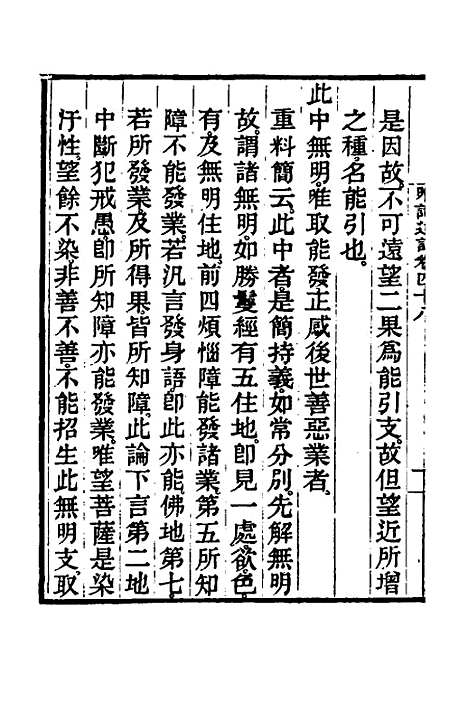 是因故。不可遠望二果爲能引支。故但望近所增
之種。名能引也。
此中無明。唯取能發正感後世善惡業者。
重料簡云。此中者。是簡持義。如常分別。先解無明
故。謂諸無明。如勝鬘經有五住地。卽見一處。欲色。
有及無明住地。前四煩惱障能發諸業。第五所知
障不能發業。若汎言發身語。卽此亦能。佛地第七。
若所發業及所得果。皆所知障。此論下言第二地
中斷犯戒愚。卽所知障亦能發業。唯望菩薩是染
汙性。望餘不染非善不善。不能招生此無明支。取